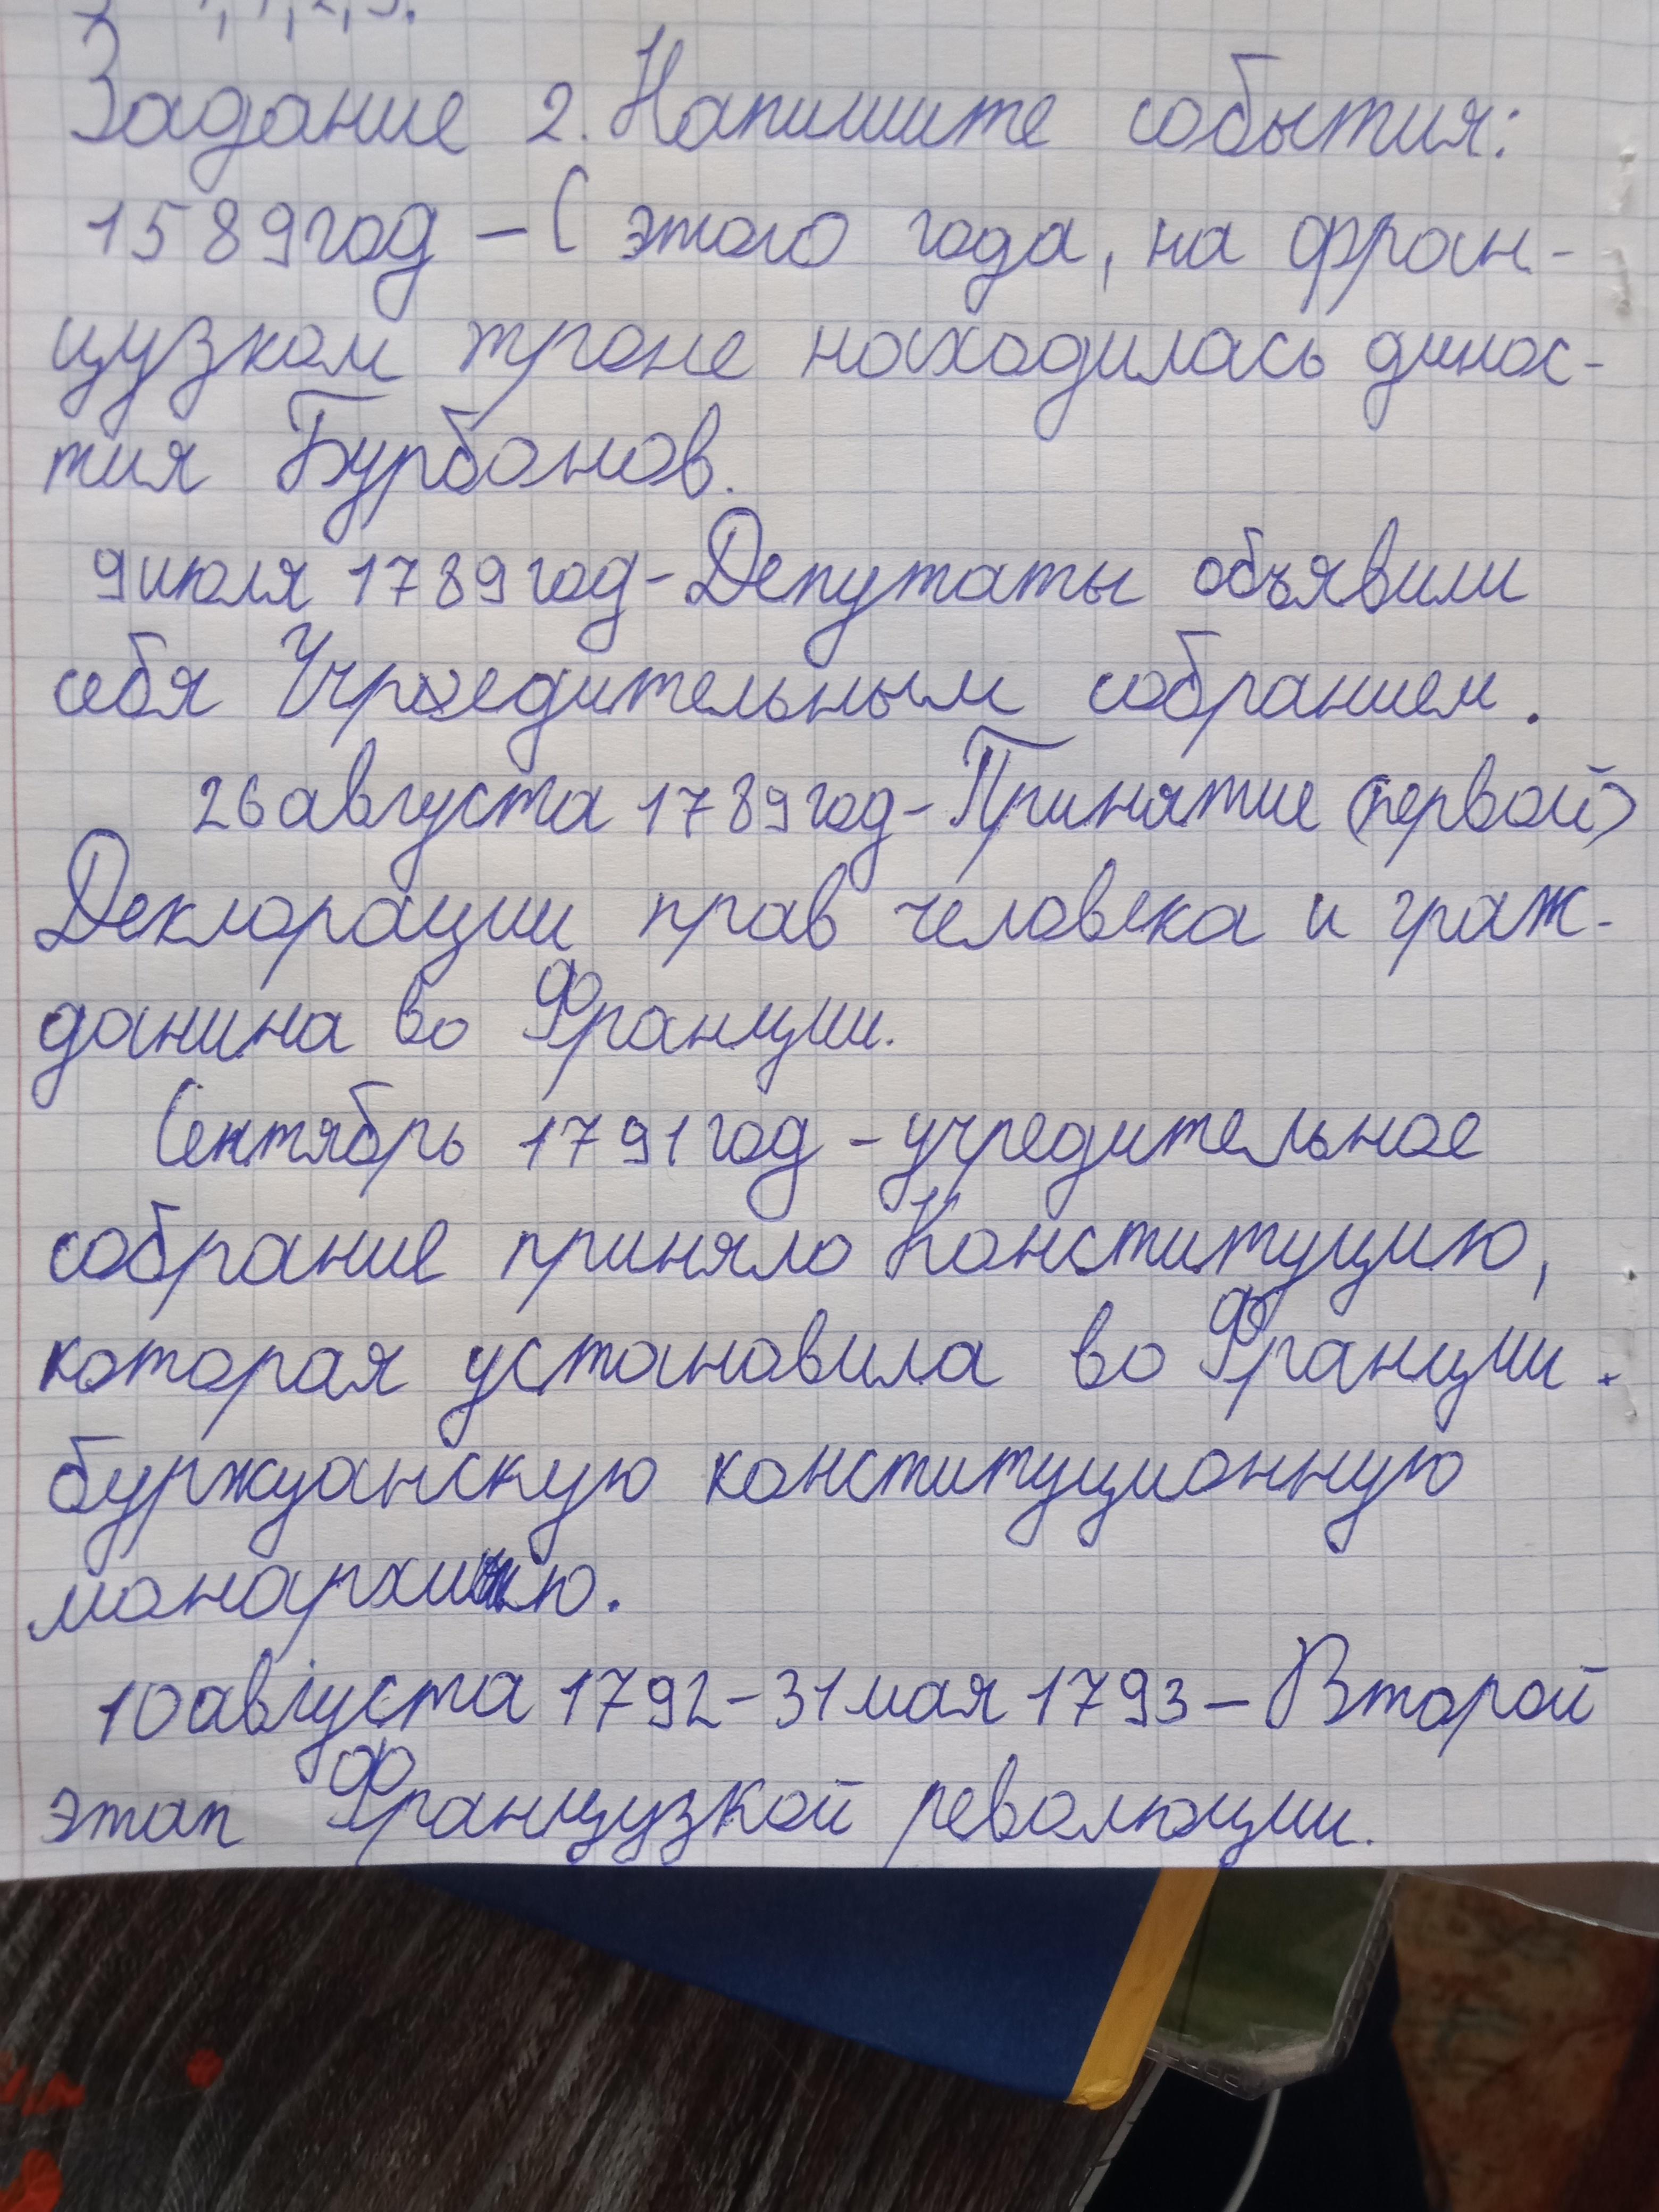 Задание 2. Напишите события:
1589год – С этого года, на фран-
цузком троне находилась динас-
тия Бурбонов.
9июля 1789год-Депутаты объявили
себя Учредительным собранием.
26августа 1789год-Принятие (первой)
Декларации прав человека и граж-
данина во Франции.
Сентябрь 1791год – учредительное
собрание приняло Конституцию,
которая установила во Франции.
буржуанскую конституционную
монархию.
10августа 1792-31мая 1793 – Второй
этап Французкой революции.